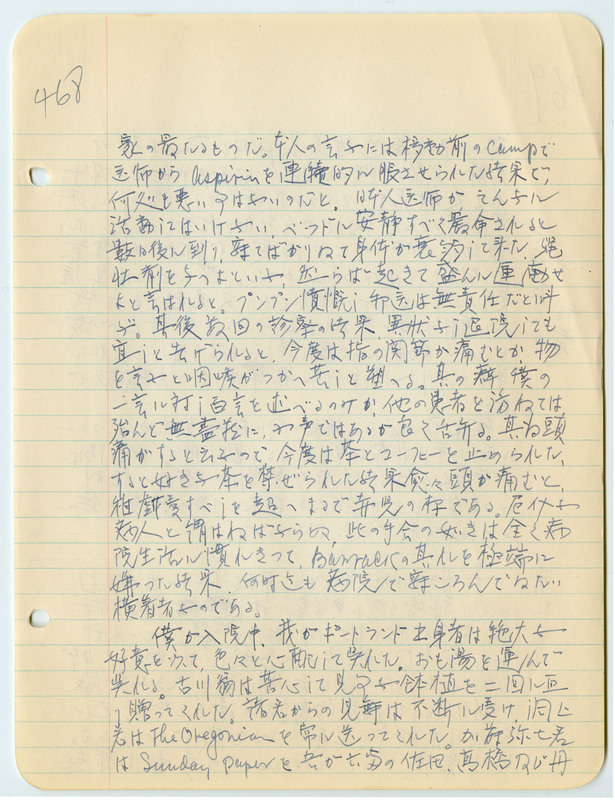 468
家の最たるものだ。本人の言ふには移動前のCampで
医師からaspirinを連続的に服させられた結果で、
何処も悪い事はないのだと。日本人医師がそんなに
活動してはいけない、ベッドに安静すべく厳命されると
数日後に到り、寝てばかりゐて身体が衰弱して来た、
壮剤を与へよといふ、然らば起きて盛んに運動せ
よと言はれると。プンプン憤慨し、却医は無責任だと叫
ぶ。其後数回の診察の結果、異状なし退院しても
宜しと告げられると、今度は指の関節が痛むとか、物
を言ふと咽喉がつかへ苦しと塑へる。其の癖、僕の
一言に対し百言を述べるのみか、他の患者を訪ねては
殆んど無尽蔵に、小声ではあるが良く舌弁る。其為頭
痛がすると云ふので、今度は茶とコーヒーを止められた、
すると好きな茶を禁ぜられた結果愈々頭が痛むと、
戯談すべしを超へまるで赤児の様である。
病人と謂はねばならぬ、此の手合の如きは全く病
院生活に慣れきつて、Barrackの其れを極端に
嫌った結果、何時迄も病院で寝ころんでゐたい
横着者なのである。
僕が入院中、我がポートランド出身者は絶大な
好意を以て、色々と心配して呉れた。おも湯を運んで
呉れる。古川翁は苦心して見事な鉢植を二回に亘
り贈ってくれた。諸君からの見舞は不断に受け、
君はThe Oregonianを常に送ってくれた。加藤弥七君
はSunday paperを 吾が六寮の佐田、高橋及び丹